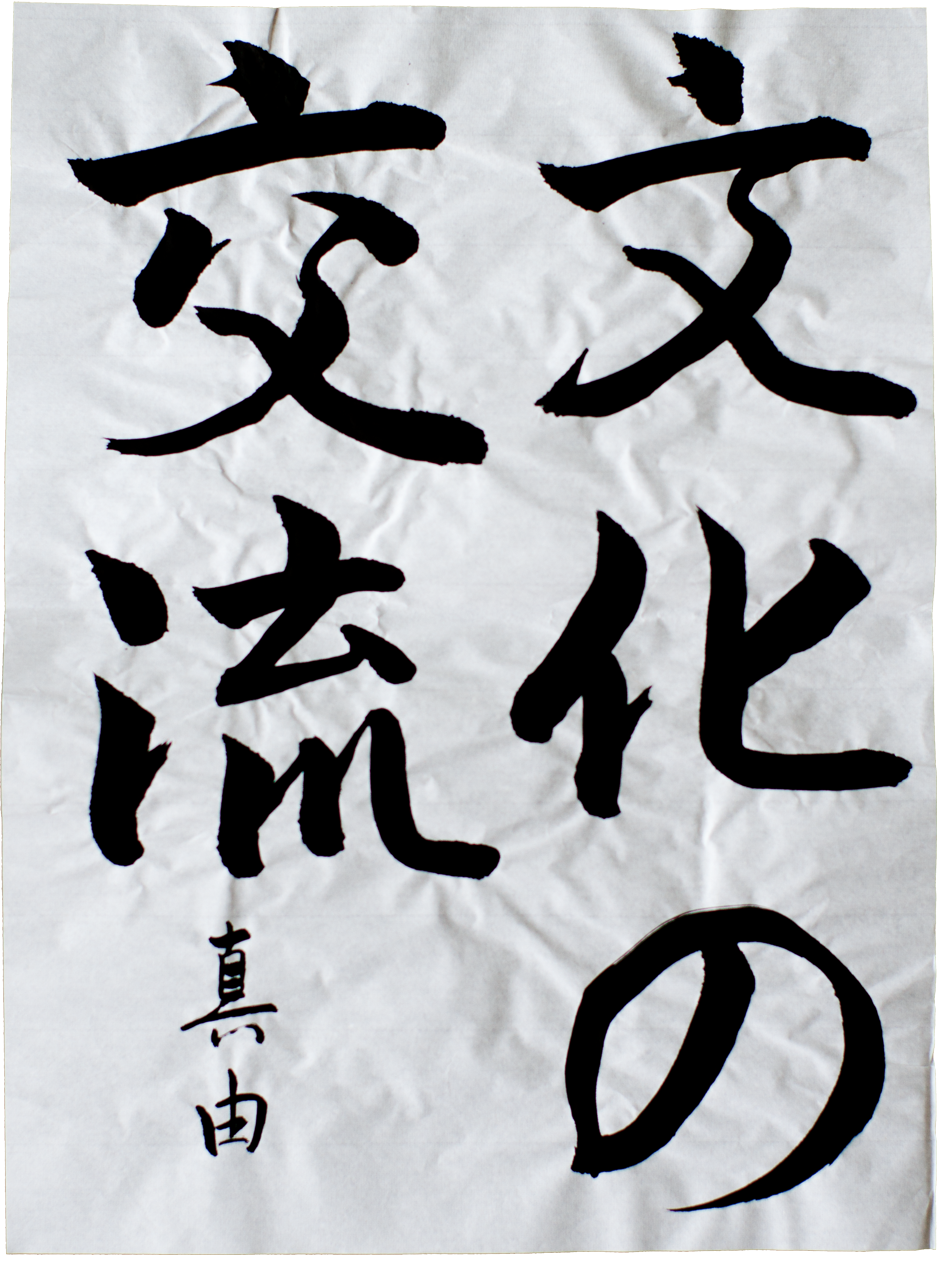 文化の
交流
真由